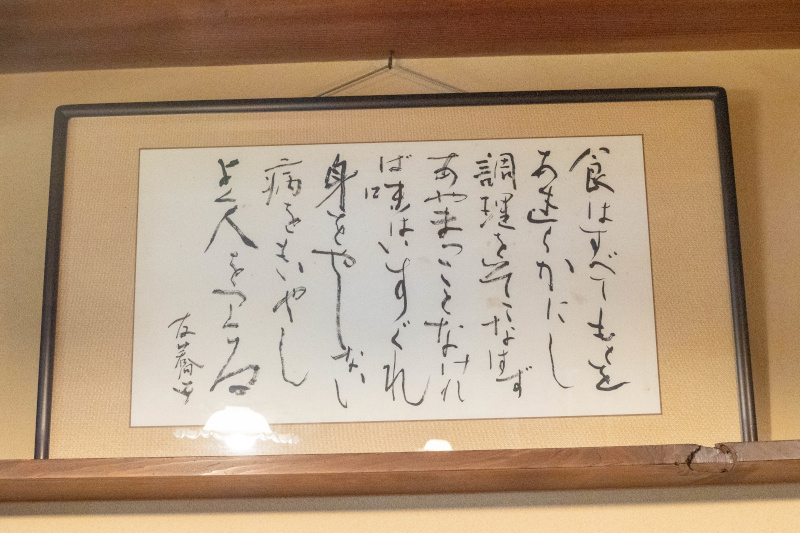 食はすべてもとを
あきらかにし
調理をしてそこなはず
あやまつことなけれ
ば味はいすぐれ
身をやしない
病をもいやし
よく人をつくる
友蕎子